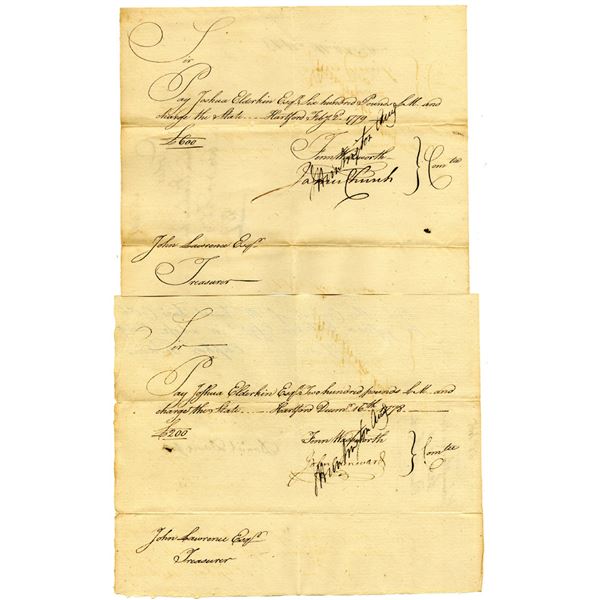 Sir
Pay Joshua Elderkin Esqr. Six hundred Pounds L.M. and
charge the State .... Hartford Feby. 1779
£600
Fenn Wadsworth
James Church
Comtee
John Lawrence Esqr.
Treasurer
Sir
Pay Joshua Elderkin Esqr. Two hundred pounds L.M. and
charge the State .... Hartford Decemr. 16th 1778
£200
Fenn Wadsworth
Comtee
John Lawrence Esqr.
Treasurer